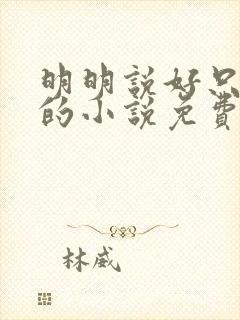 明明說好只
的小說免費
林威